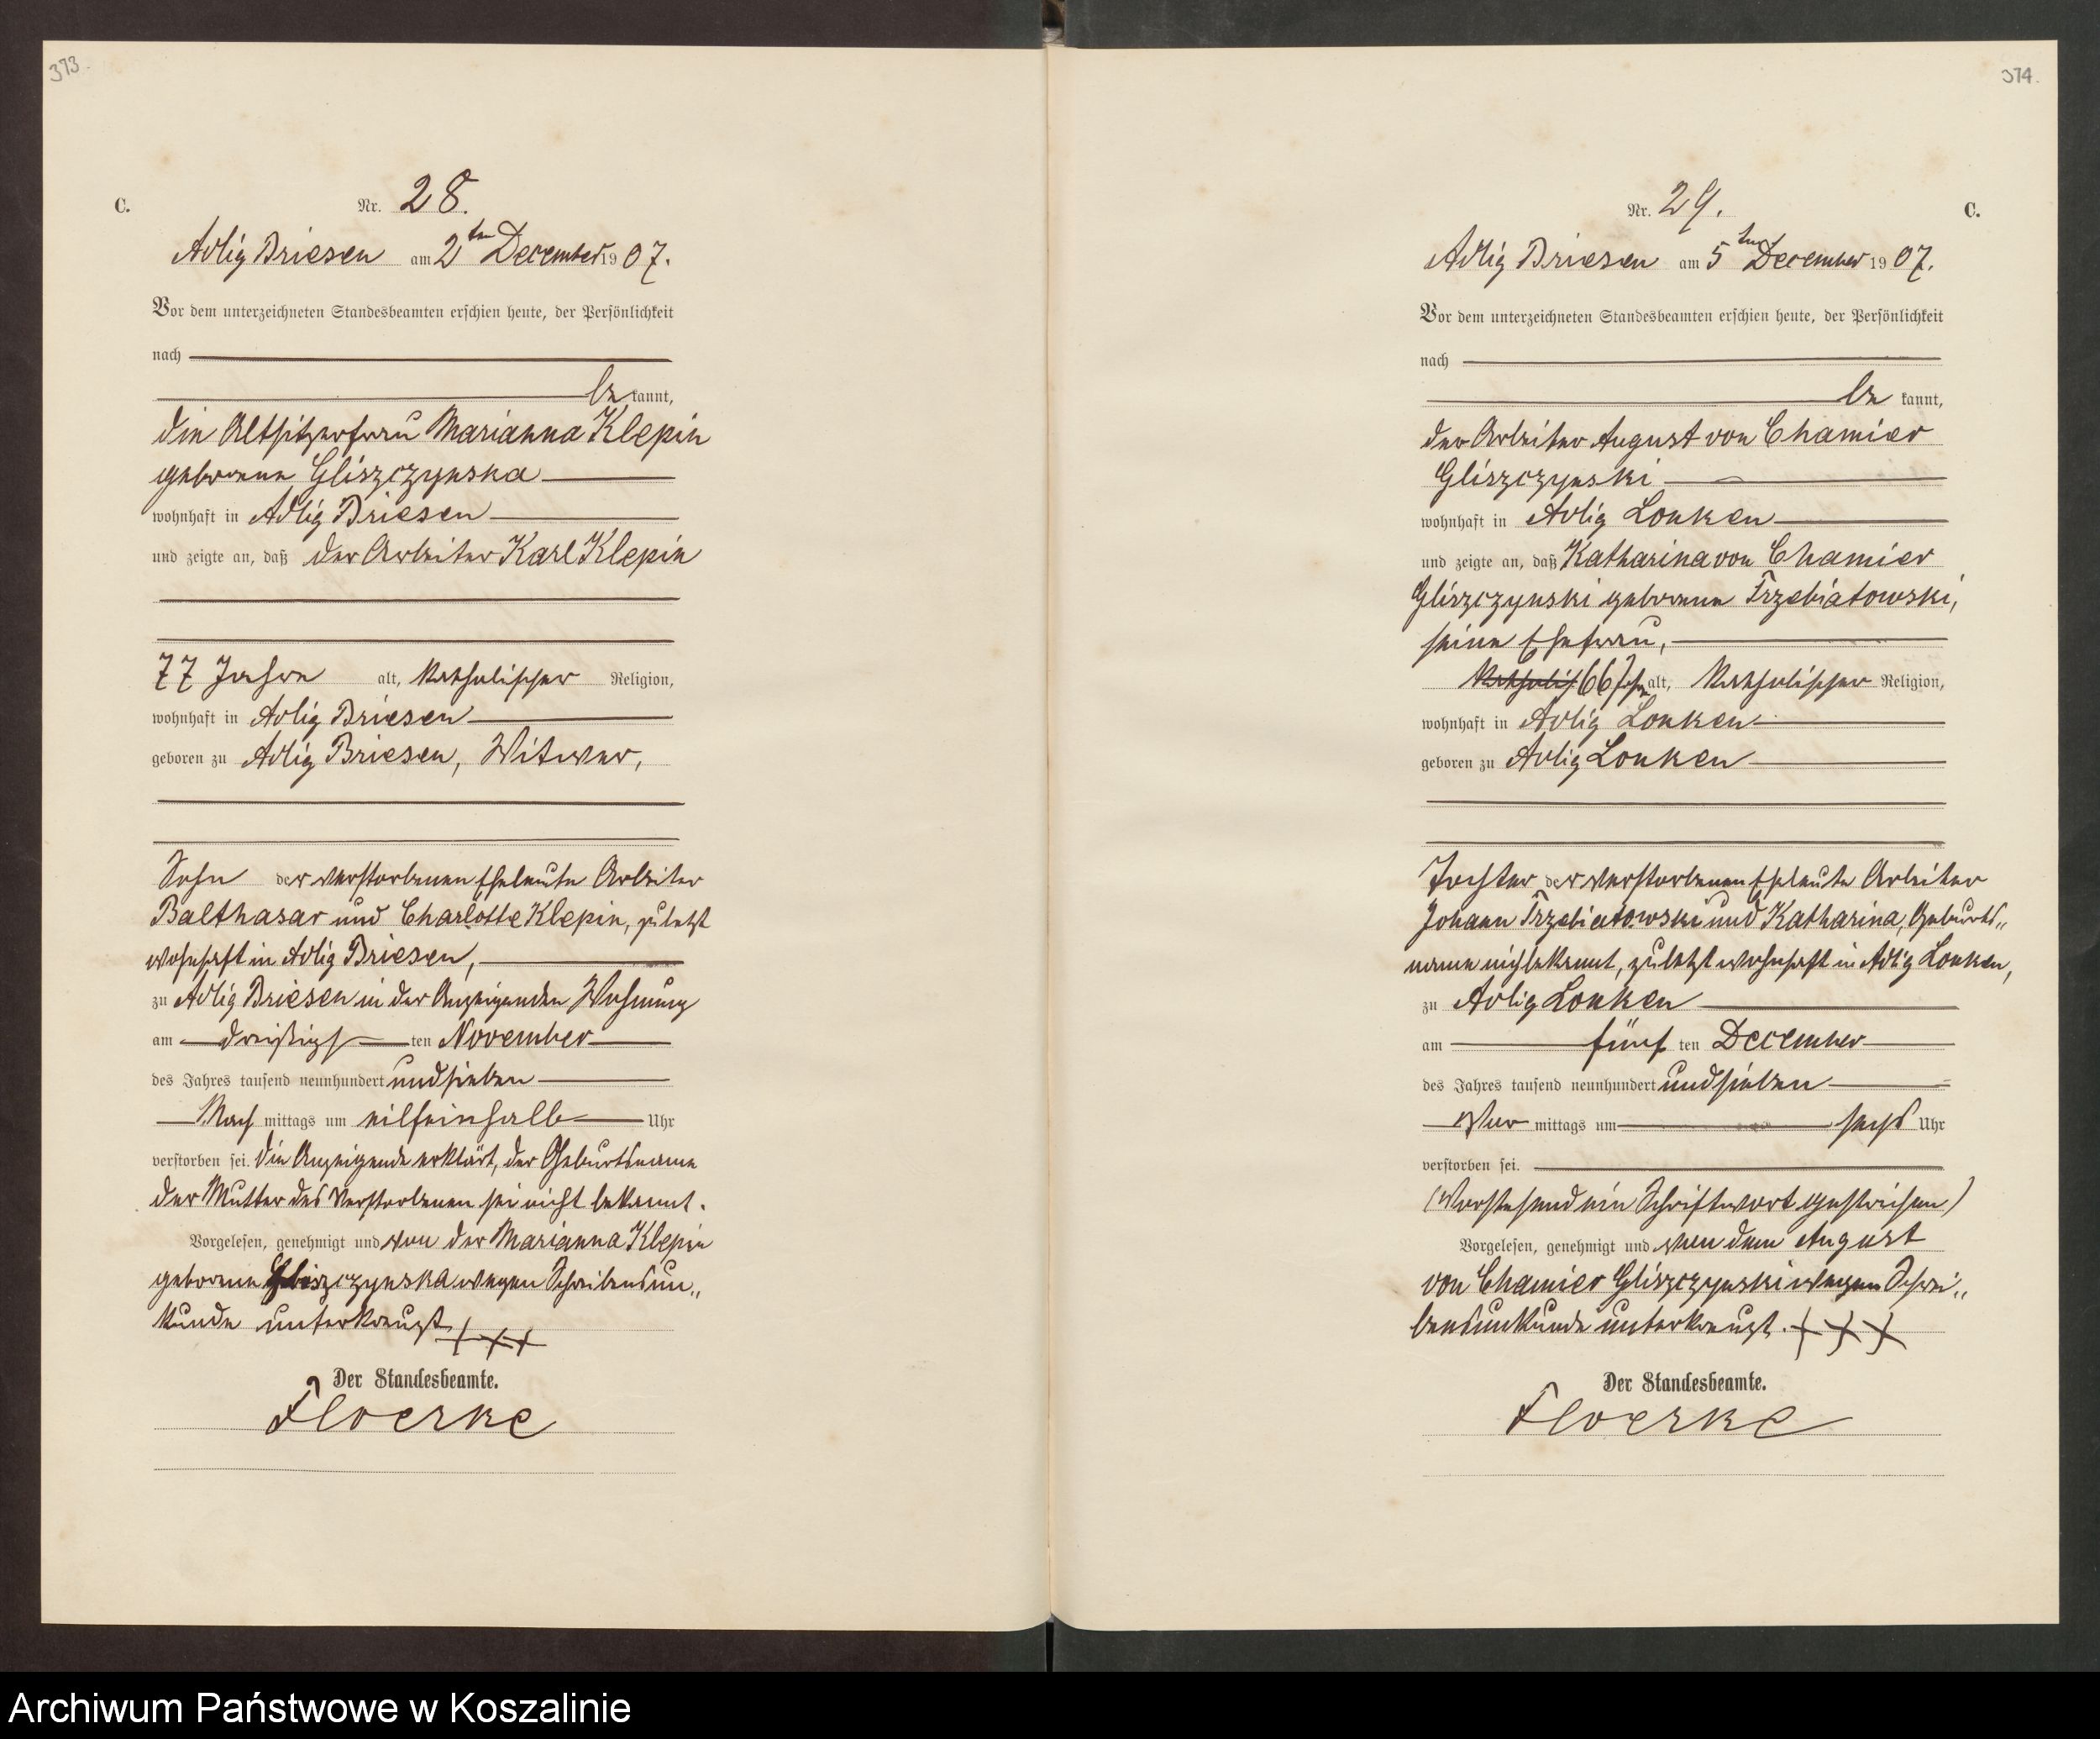 373.
C.
Nr. 28.
Adlig Briesen am 2ten December 1907.
Vor dem unterzeichneten Standesbeamten erschien heute, der Persönlichkeit
nach
be kannt,
die Altsitzerfrau Marianna Klepin
geborene Gliszczynska
wohnhaft in Adlig Briesen
und zeigte an, daß der Arbeiter Karl Klepin
77 Jahre alt, katholischer Religion,
wohnhaft in Adlig Briesen
geboren zu Adlig Briesen, Witwer,
Sohn der verstorbenen Eheleute Arbeiter
Balthasar und Charlotte Klepin, zuletzt
wohnhaft in Adlig Briesen,
zu Adlig Briesen in der Anzeigenden Wohnung
am dreißigs ten November
des Jahres tausend neunhundert und sieben
Nach mittags um eilfeinhalb Uhr
verstorben sei. Die Anzeigende erklärt, der Geburtsname
der Mutter des Verstorbenen sei nicht bekannt.
Vorgelesen, genehmigt und von der Marianna Klepin
geborene Gliszczynska wegen Schreibensun„
kunde unterkreuzt +++
Der Standesbeamte.
Floerke
374.
C.
Nr. 29.
Adlig Briesen am 5ten December 1907.
Vor dem unterzeichneten Standesbeamten erschien heute, der Persönlichkeit
nach
be kannt,
der Arbeiter August von Chamier
Gliszczynski
wohnhaft in Adlig Lonken
und zeigte an, daß Katharina von Chamier
Gliszczynski geborene Trzebiatowski,
seine Ehefrau,
katholis 66 Jahre alt, katholischer Religion,
wohnhaft in Adlig Lonken
geboren zu Adlig Lonken
Tochter der verstorbenen Eheleute Arbeiter
Johann Trzebiatowski und Katharina, Geburts„
name nicht bekannt, zuletzt wohnhaft in Adlig Lonken,
zu Adlig Lonken
am fünf ten December
des Jahres tausend neunhundert und sieben
Vor mittags um sechs Uhr
verstorben sei.
(Vorstehend ein Schriftwort gestrichen)
Vorgelesen, genehmigt und von dem August
von Chamier Gliszczynski wegen Schrei„
bensunkunde unterkreuzt. +++
Der Standesbeamte.
Floerke
Archiwum Państwowe w Koszalinie